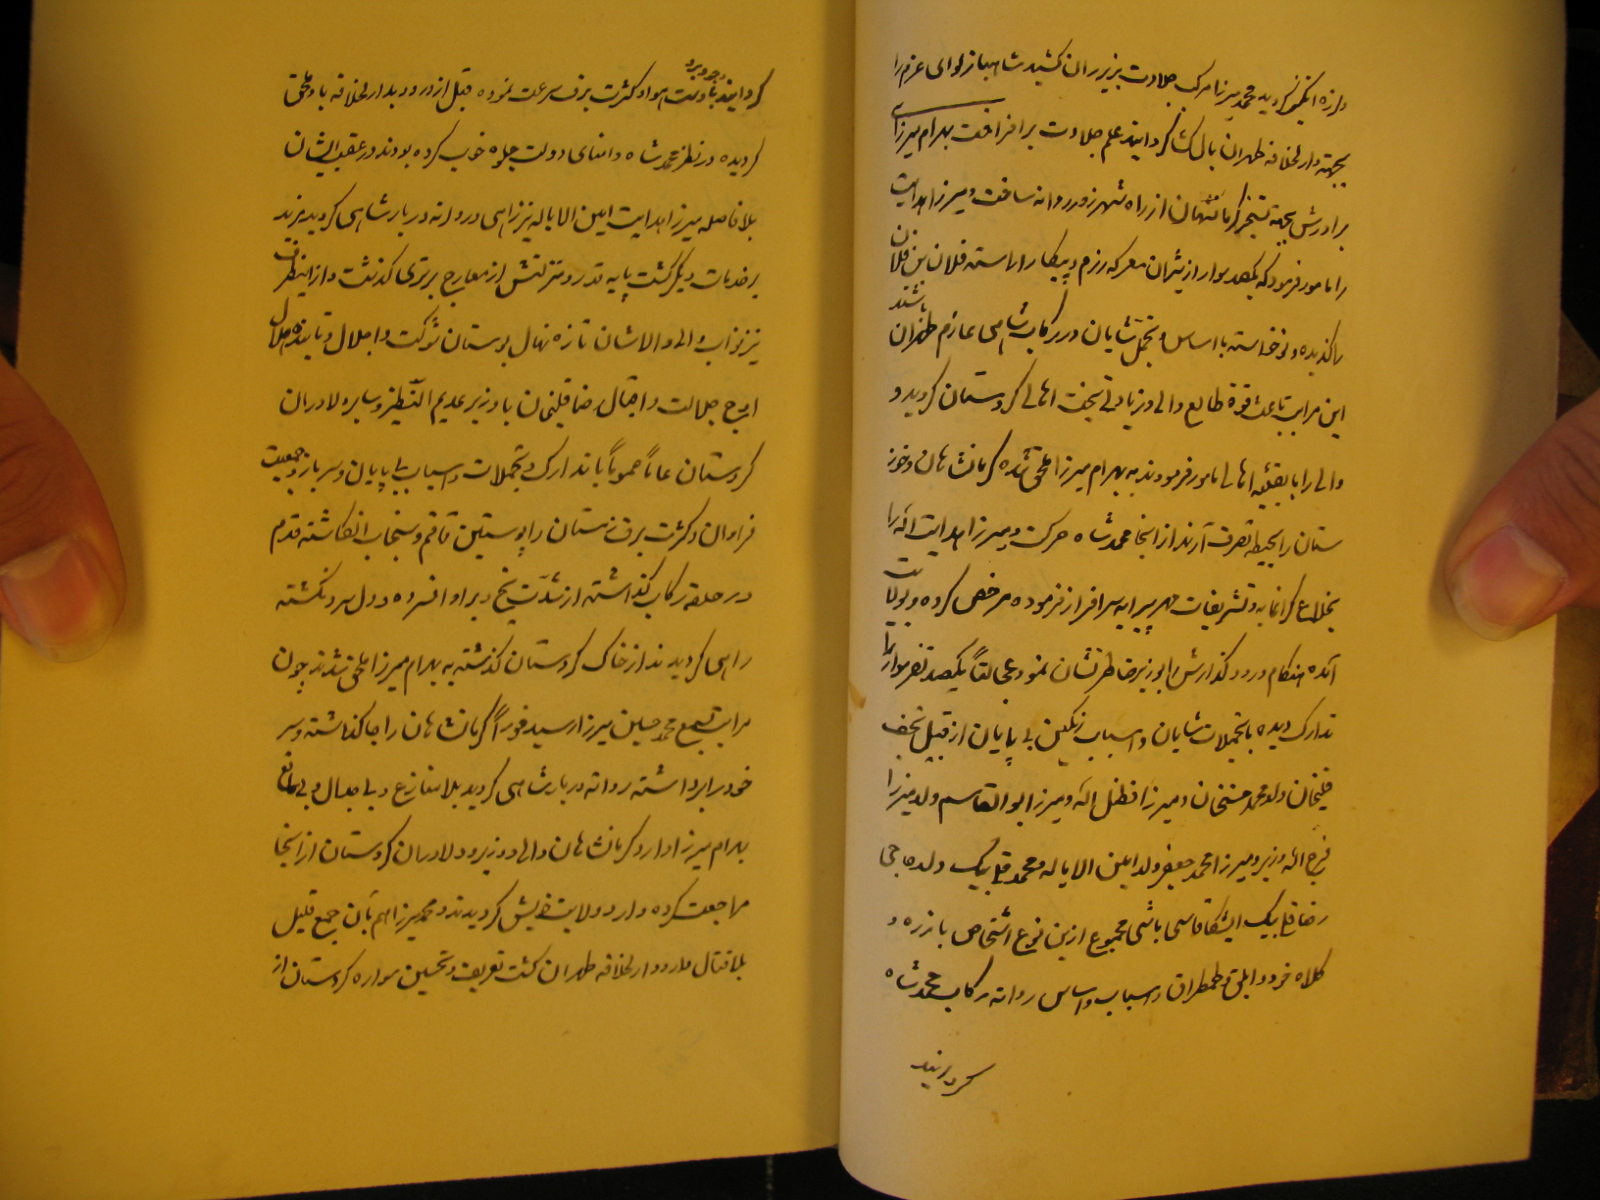 وارزه انگیز گردیده محمد میرزا مرکب جلادت بزیر ران کشید شاهباز لوای عزم را
بجهته دارلخلافه طهران بال کشا گردانیده علم جلادت برافراخت بهرام میرزای
برادرش بجهة تسخیر کرمانشهان از راه شهرزور روانه ساخت و میرزا هدایت
را مامور فرمود که یکصد سوار از شیران معرکه رزم و پیکار اراسته فلان بن فلان
باشند
ها کذیده و نوخواسته با اساس و تجمل شایان در رکاب شاهی عازم طهران
این مراتب باعث قوة طالع والی و زیادتی سخت اهالی کردستان گردید و
والی را با بقیّه اهالی مامور فرمودند به بهرام میرزا ملحق شده کرمانشاهان و خوز
ستان را بحیطه تصرف آرند از انجا محمد شاه حرکت و میرزا هدایت اله را
بخلاع گرانمایه و تشریفات مهر پیرایه سرافراز فرموده مرخص کرده و بولایت
آمده هنکام ورود کذارش را بوزیر خاطر نشان نمود عجالتاً یکصد نفر سوار را
تدارک دیده با تجملات شایان و اسباب رنگین بی پایان از قبیل نجف
قلیخان ولد محمد حسنخان و میرزا فضل اله و میرزا ابوالقاسم ولد میرزا
فرج اله وزیر و میرزا محمد جعفر ولد امین الایاله و محمد قلی بیک ولد حاجی
رضا قلی بیک ایشکاقاسی باشی مجموع ازین نوع اشخاص با زره و
کلاه خود و ایلچی و طمطراق و اسباب و اساس روانه رکاب محمد شاه
گردانید
گردانیده با وصف هوا و کثرت برف سرعت نموده قبل از ورود بدارلخلافه باو ملحق
گردیده در نظر محمد شاه و امنای دولت جلوه خوب کرده بودند در عقب ایشان
بلا فاصله میرزا هدایت امین الایاله نیز راهی و روانه دربار شاهی گردید مزید
بر خدمات دیگر گشت پایه قدر و منزلتش از معارج برتری گذشت و از اینطرف
نیز نواب والی والاشان تازه نهال بوستان شوکت و اجلال و تابنده هلال
اوج جلالت و اقبال رضا قلیخان با وزیر عدیم النّظیر و سایر دلاوران
کردستان عامّاً عموماً با تدارک و تجملات و اسباب بی پایان و سرباز و جمعیت
فراوان و کثرت برف زمستان را پوستین قاقم و سنجاب انکاشته قدم
در حلقه رکاب گذاشته از شدّت یخ و برد افسرده و دل سرد نکشته
راهی گردیدند از خاک کردستان گذشته به بهرام میرزا ملحق شدند چون
مراتب بسمع محمد حسین میرزا رسید فوراً کرمانشاهان را جا گذاشته و سر
خود را برداشته روانه دربار شاهی گردید بلا منازع و بی جدال و بی مانع
بهرام میرزا وارد کرمانشاهان والی و وزیر و دلاوران کردستان از انجا
مراجعت کرده وارد ولایت خویش گردیدند و محمد میرزا هم بآن جمع قلیل
بلا قتال وارد دارلخلافه طهران گشت تعریف و تحسین سواره کردستان از